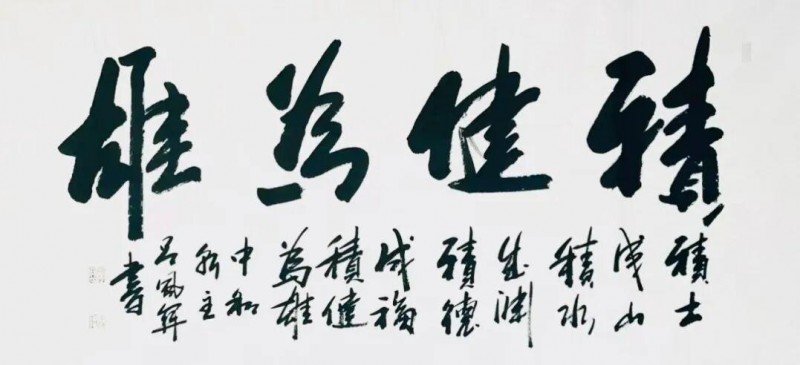 積健為雄
積土
成山
積水
成渊
積德
成福
積健
為雄
中和
主
吕
書